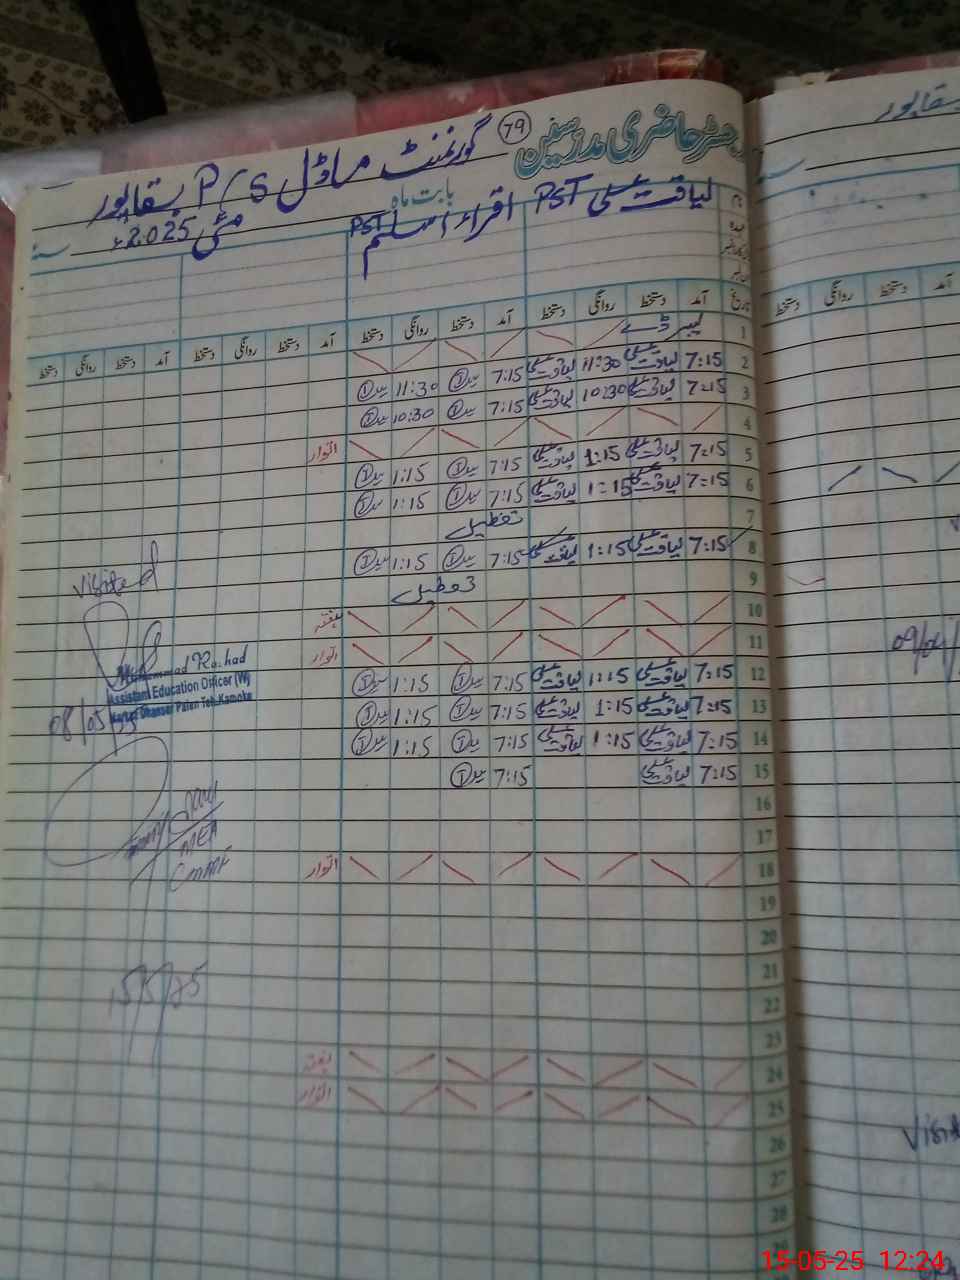 رجسٹر حاضری مدرسین
79
گورنمنٹ ماڈل P/S بقاپور
بابت ماہ
مئی 2025ء
لیاقت علی PST
اقراء اسلم PST
تاریخ آمد دستخط روانگی دستخط آمد دستخط روانگی دستخط آمد دستخط روانگی دستخط آمد دستخط روانگی دستخط
1 لیبر ڈے
2 7:15 لیاقت علی 11:30 لیاقت علی 7:15 11:30
3 7:15 لیاقت علی 10:30 لیاقت علی 7:15 10:30
4 اتوار
5 7:15 لیاقت علی 1:15 لیاقت علی 7:15 1:15
6 7:15 لیاقت علی 1:15 لیاقت علی 7:15 1:15
7 تعطیل
8 7:15 لیاقت علی 1:15 لیاقت علی 7:15 1:15
9 تعطیل
10 ہفتہ
11 اتوار
12 7:15 لیاقت علی 1:15 لیاقت علی 7:15 1:15
13 7:15 لیاقت علی 1:15 لیاقت علی 7:15 1:15
14 7:15 لیاقت علی 1:15 لیاقت علی 7:15 1:15
15 7:15 لیاقت علی 7:15
16
17
18 اتوار
19
20
21
22
23
24 ہفتہ
25 اتوار
26
27
28
29
Visited
Muhammad Rashad
Assistant Education Officer (W)
Markaz Dhansar Paien Teh. Kamoke
MEA
15/5/25
بقاپور
دستخط روانگی دستخط آمد
09/04/
15-05-25 12:24